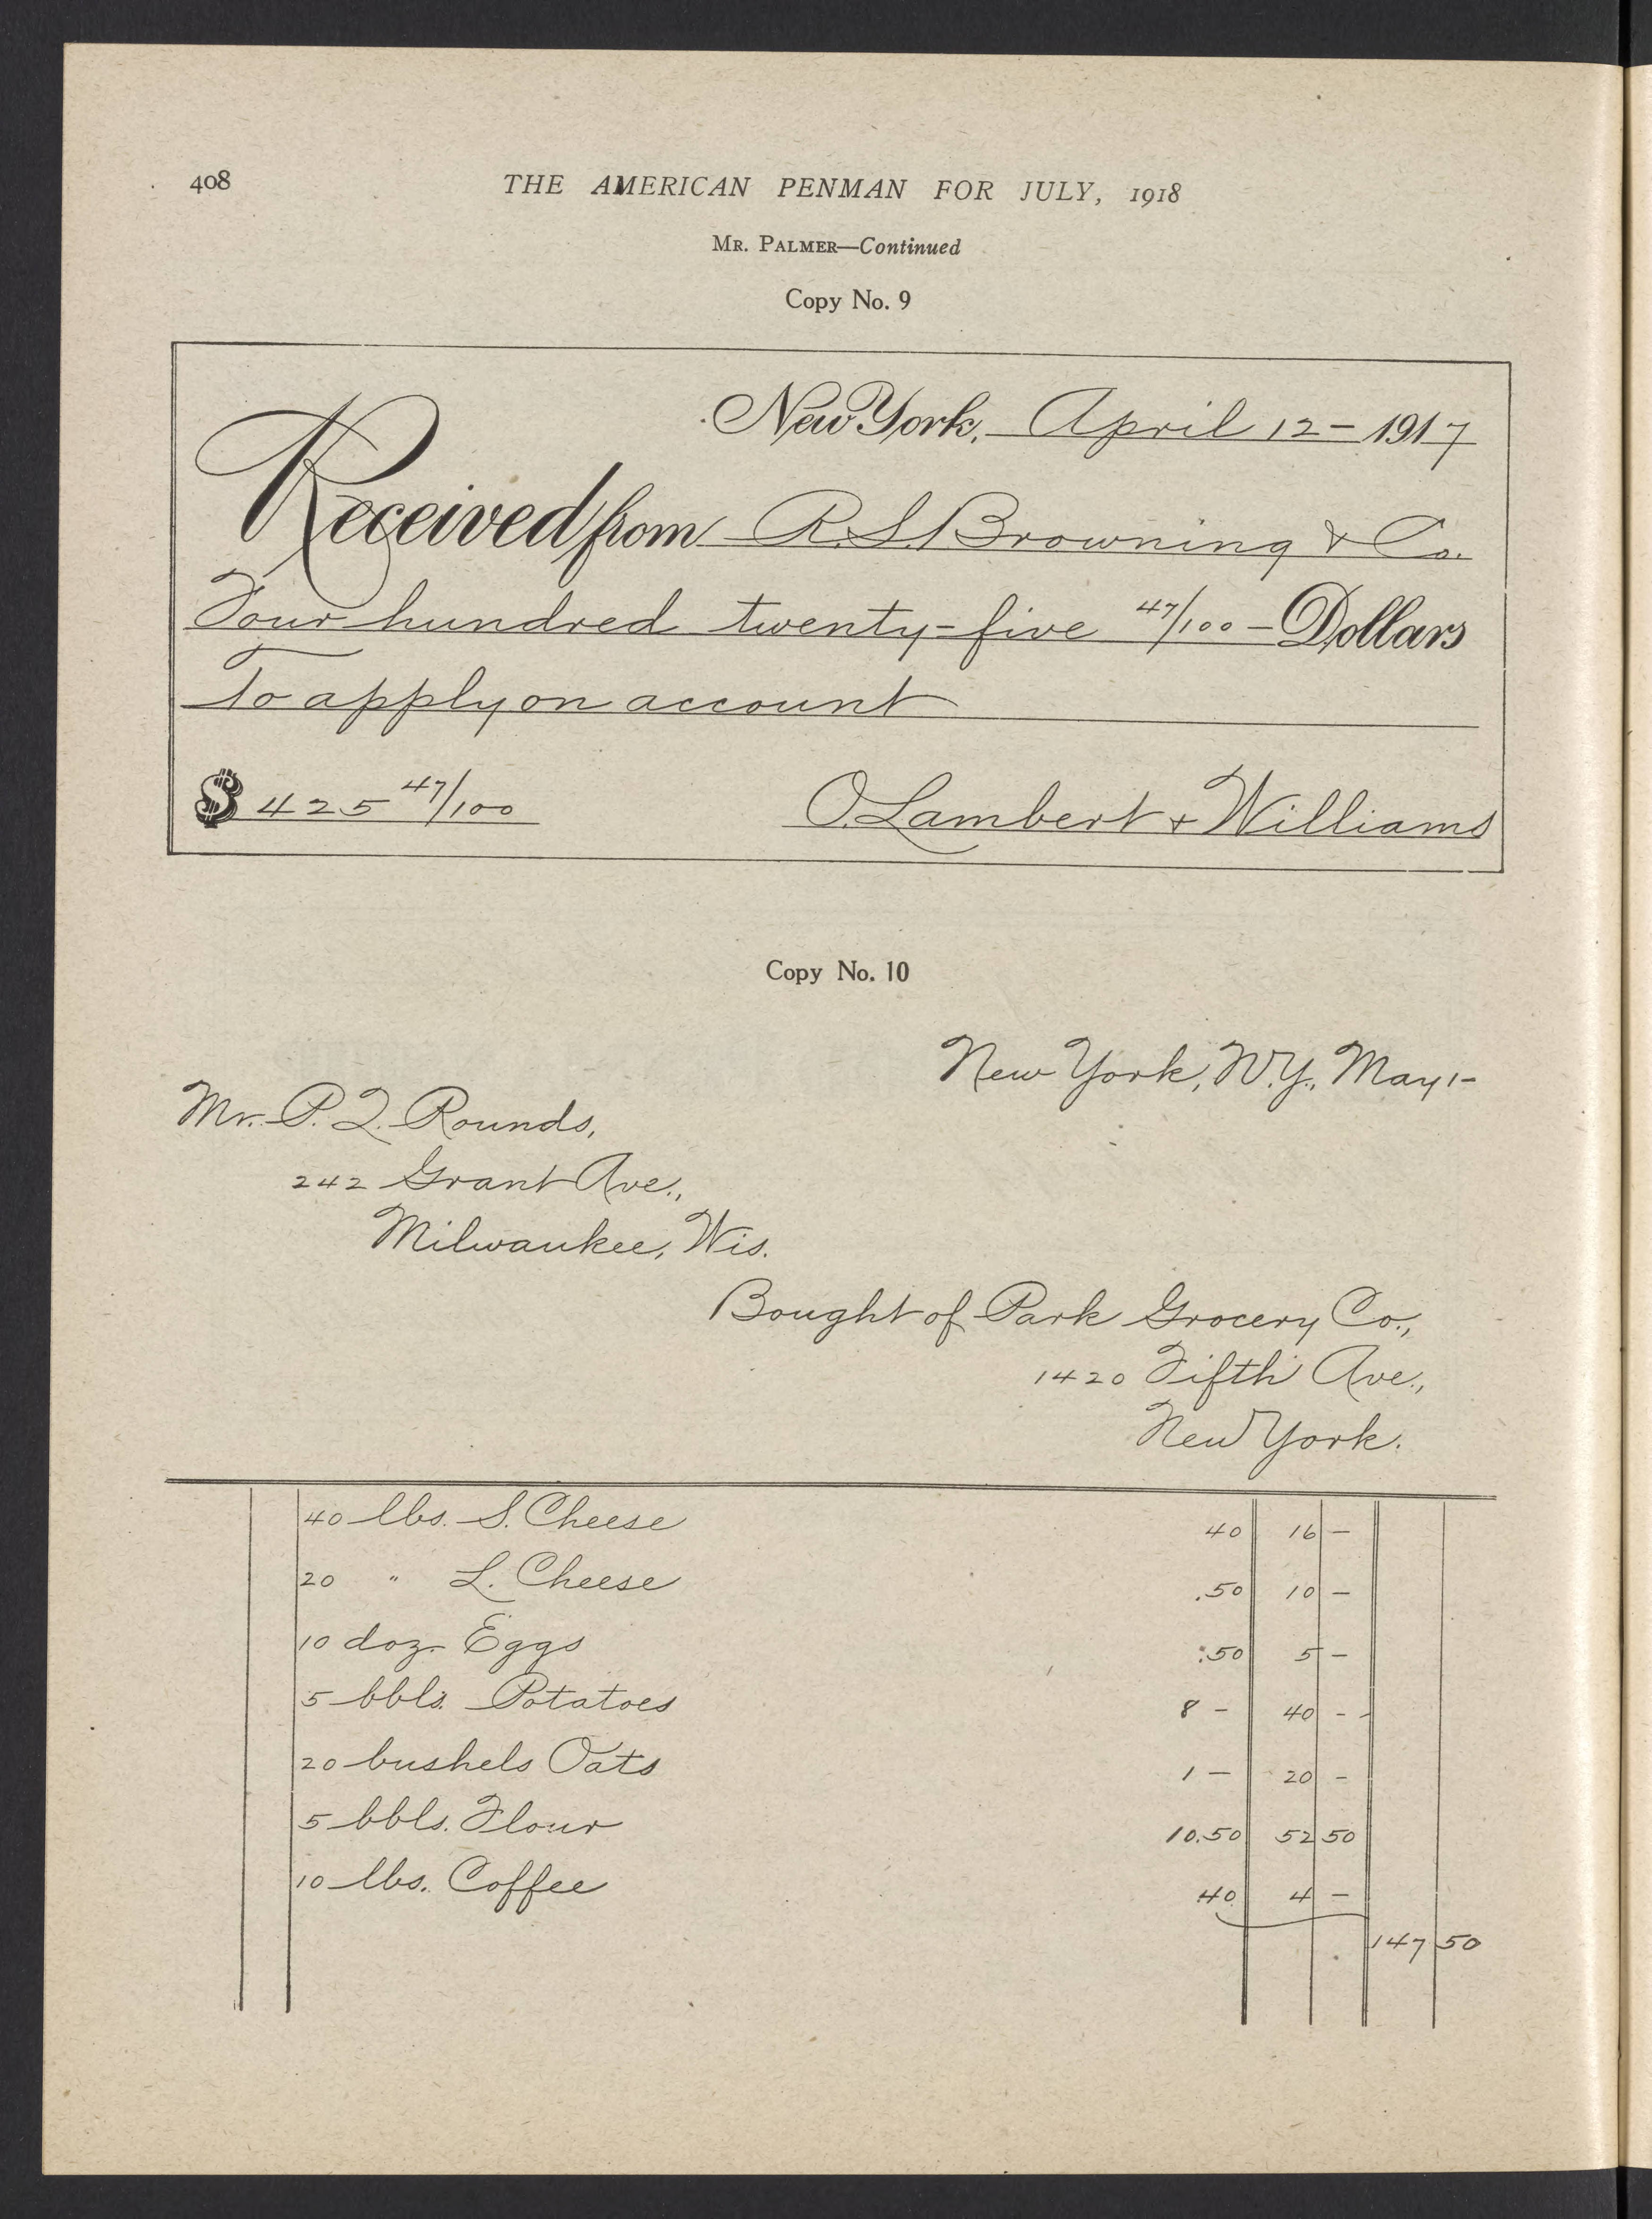 408
THE AMERICAN PENMAN FOR JULY, 1918
MR. PALMER—Continued
Copy No. 9
New York, April 12 – 1917
Received from R. S. Browning & Co.
Four hundred twenty-five 47/100 – Dollars
To apply on account
$ 425 47/100 O. Lambert & Williams
Copy No. 10
New York, N.Y., May 1–
Mr. P. Q. Rounds,
242 Grant Ave.,
Milwaukee, Wis.
Bought of Park Grocery Co.,
1420 Fifth Ave.,
New York.
40 lbs. S. Cheese 40 16 –
20 " L. Cheese .50 10 –
10 doz. Eggs .50 5 –
5 bbls. Potatoes 8 – 40 – -
20 bushels Oats 1 – 20 –
5 bbls. Flour 10.50 52 50
10 lbs. Coffee 40 4 –
147 50